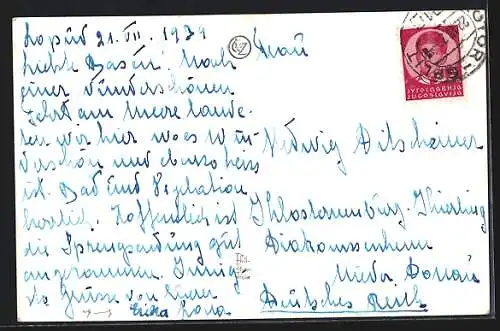 Lopud 21. VII. 1939
Liebe Basen! Nach
einer wunderschönen
Fahrt am Meere lande-
ten wir hier wo es wun-
derschön und ebenso heiss
ist. Bad und Vegetation
herrlich. Hoffentlich ist
die
gut
angekommen. Innig-
ste Grüsse von Eurer
Erika
Frau
Hedwig
Klosterneuburg-Kierling
Diakonissenheim
Nieder Donau
Deutsches Reich
ЈУГОСЛАВИЈА
JUGOSLAVIJA